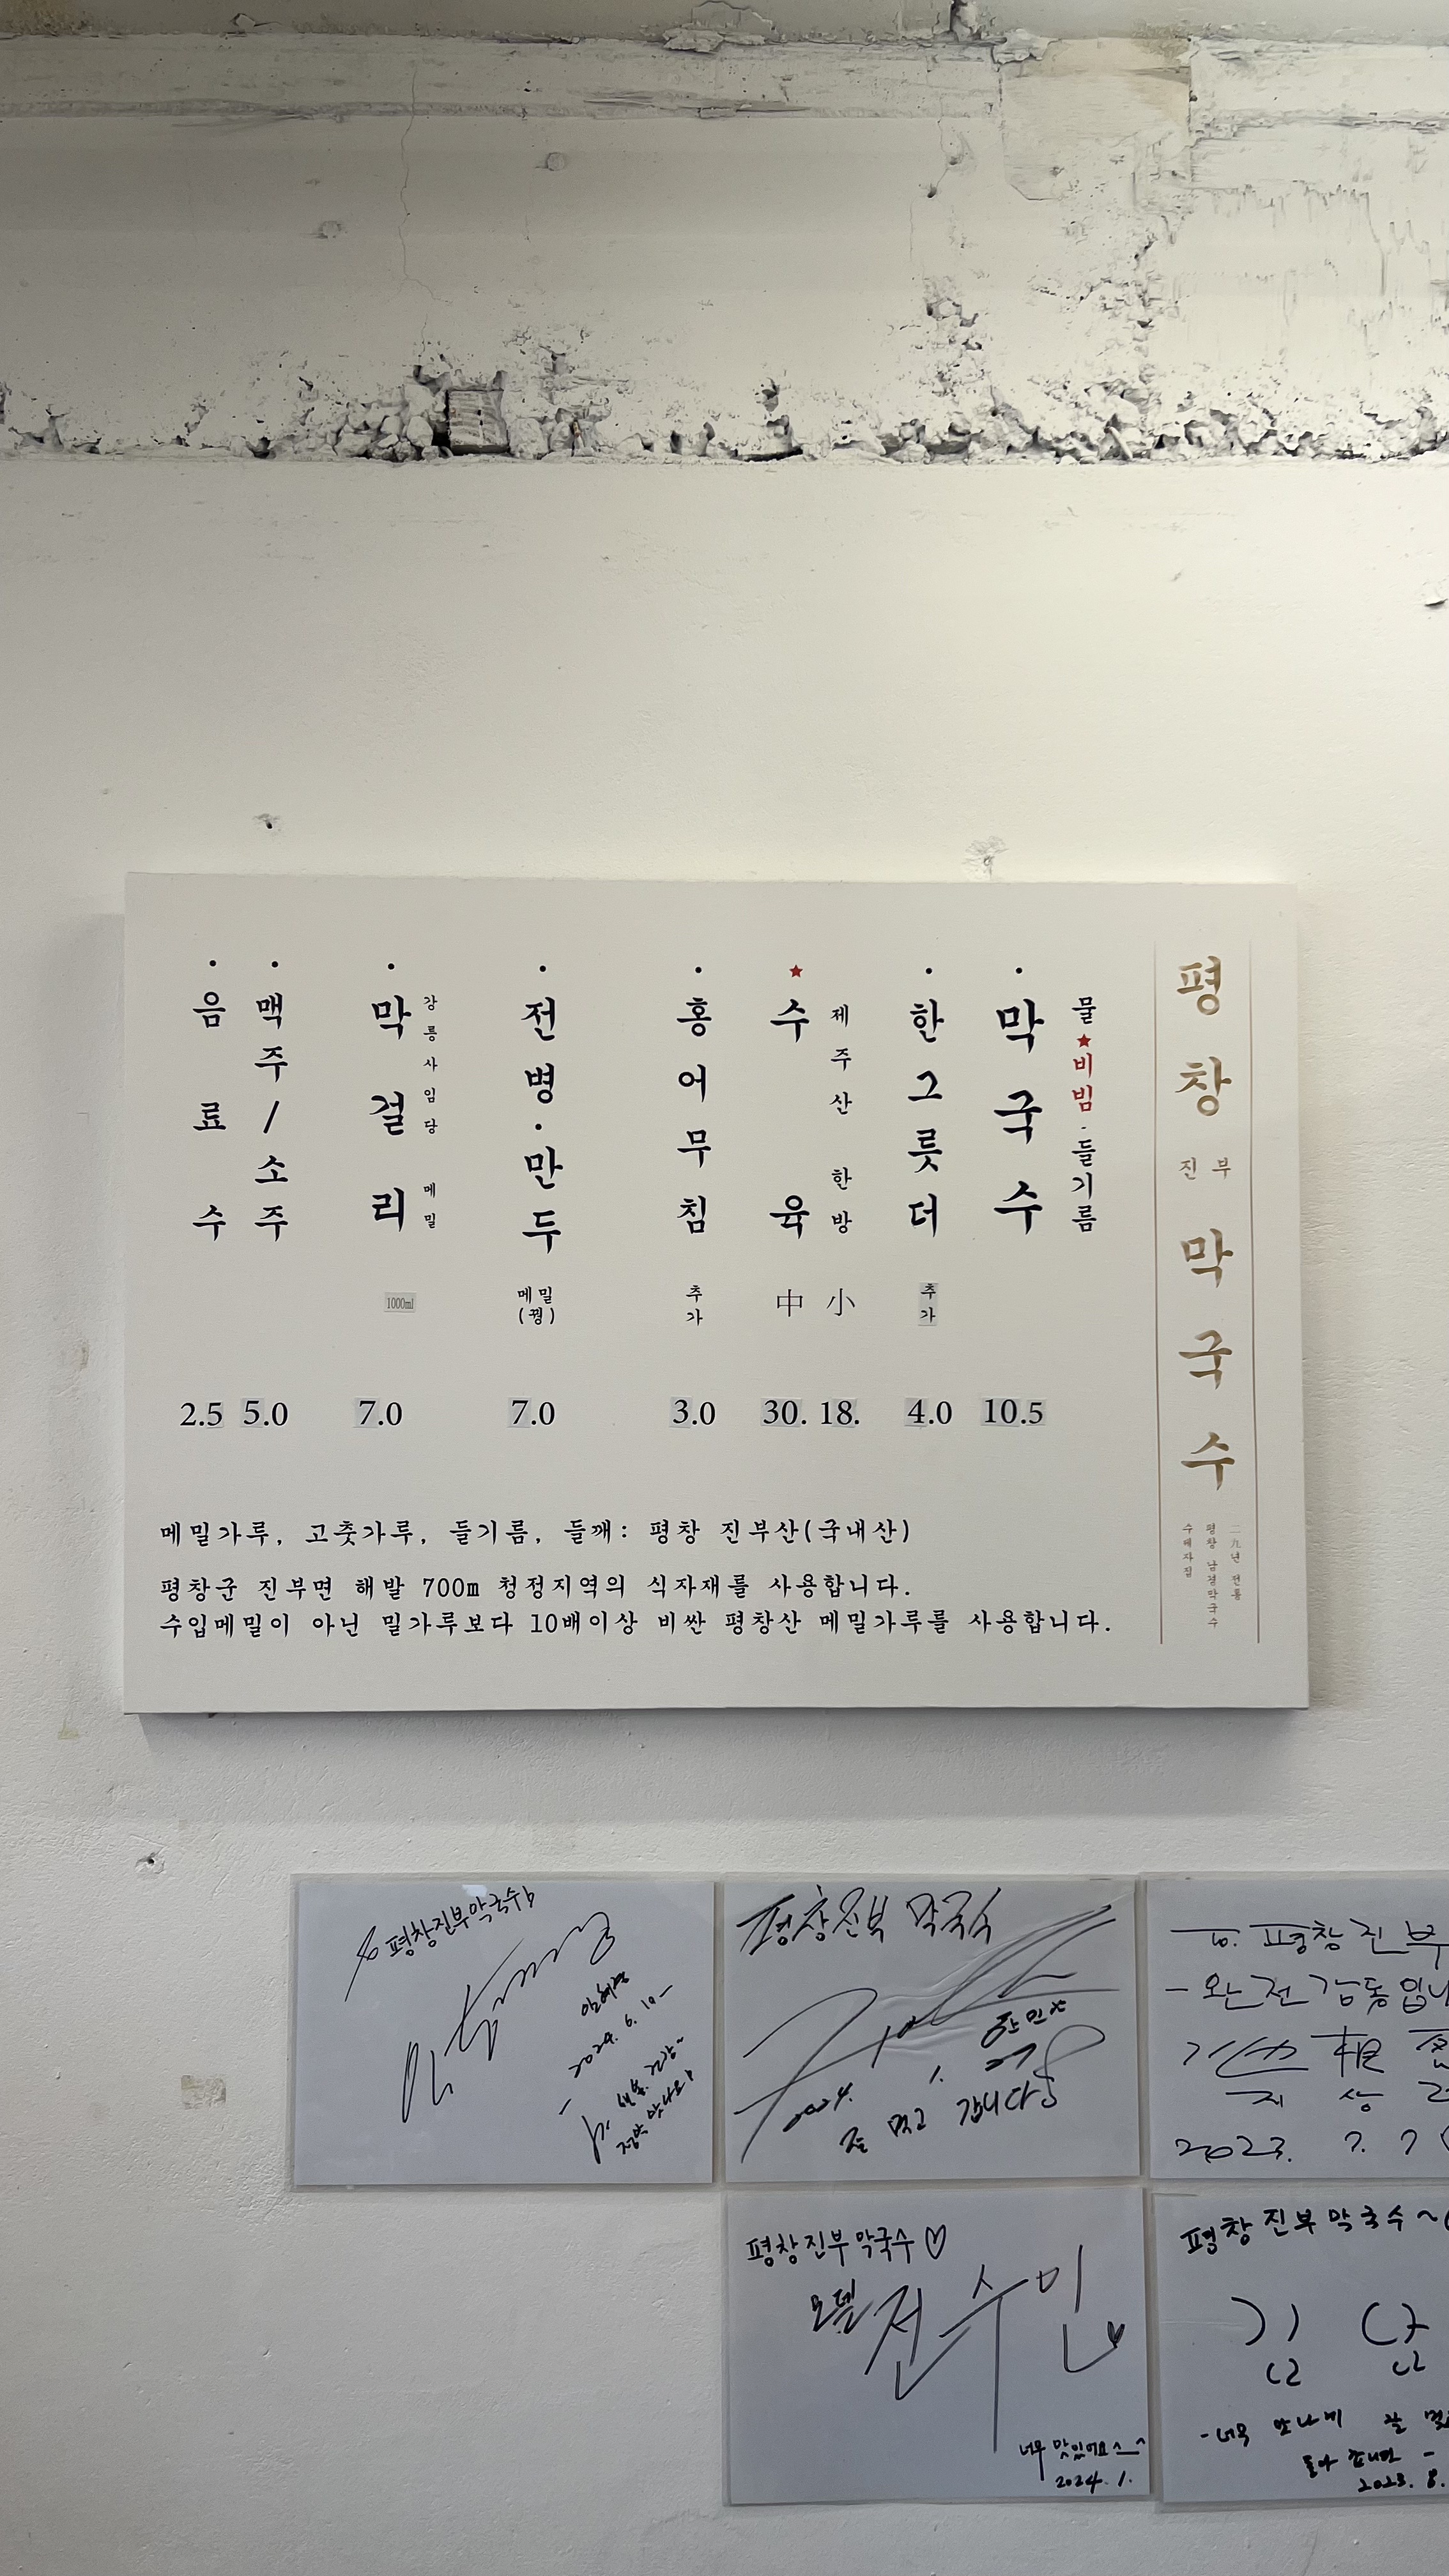 평창
진부
막국수
二九년 전통
평창 남경막국수
수제자집
물★비빔·들기름
• 막국수
10.5
• 한그릇더
추가
4.0
제주산 한방
★ 수육
小 18.
中 30.
• 홍어무침
추가
3.0
• 전병·만두
메밀
(꿩)
7.0
강릉사임당 메밀
• 막걸리
1000ml
7.0
• 맥주/소주
5.0
• 음료수
2.5
메밀가루, 고춧가루, 들기름, 들깨: 평창 진부산(국내산)
평창군 진부면 해발 700m 청정지역의 식자재를 사용합니다.
수입메밀이 아닌 밀가루보다 10배이상 비싼 평창산 메밀가루를 사용합니다.
평창진부막국수
2024. 6. 10
평창진부 막국수
2024. 1.
잘 먹고 갑니다
to. 평창진부
- 완전 감동입니
2023. 7. 7
평창진부막국수♡
모델 전수민
너무 맛있어요^_^
2024. 1.
평창진부막국수~
- 너무 맛나게 잘
2023. 8.